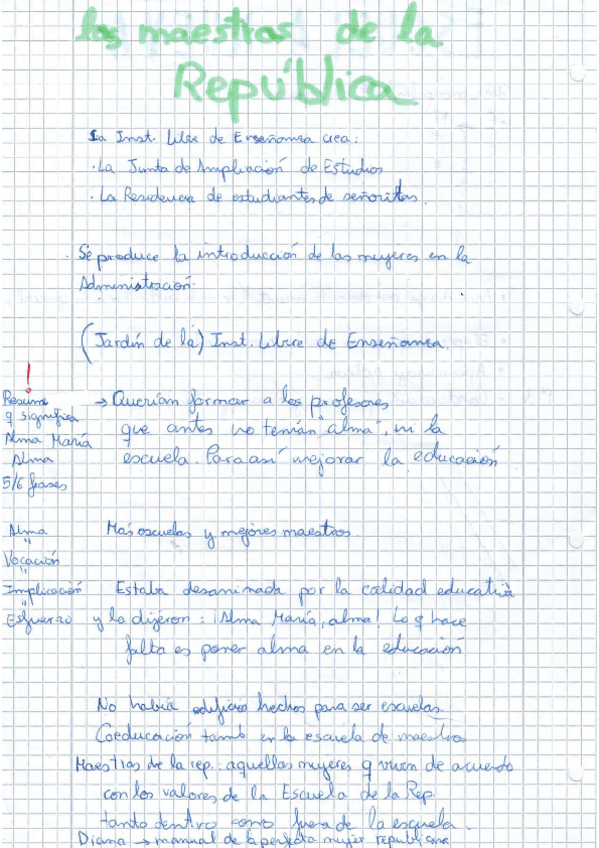 las maestras de la
República
La Inst. Libre de Enseñanza crea:
· La Junta de Ampliación de Estudios
· La Residencia de estudiantes de señoritas.
· Se produce la introducción de las mujeres en la
Administración.
(Jardín de la) Inst. Libre de Enseñanza.
!
Resume
q significa
Alma María
Alma
5/6 frases
→ Querían formar a los profesores
que antes no tenían "alma", ni la
escuela. Para así mejorar la educación
Alma
"
Vocación
"
Implicación
"
Esfuerzo
Más escuelas y mejores maestros.
Estaba desanimada por la calidad educativa
y la dijeron: ¡Alma María, alma! Lo q hace
falta es poner alma en la educación
No había edificios hechos para ser escuelas.
Coeducación tamb en la escuela de maestros
Maestras de la rep.: aquellas mujeres q viven de acuerdo
con los valores de la Escuela de la Rep.
tanto dentro como fuera de la escuela.
Diana → manual de la perfecta mujer republicana